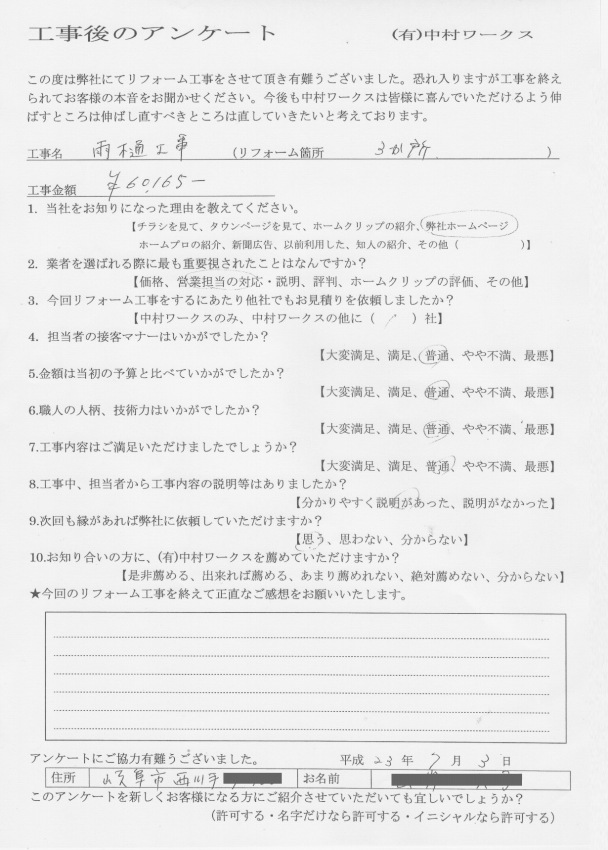 工事後のアンケート　(有)中村ワークス
この度は弊社にてリフォーム工事をさせて頂き有難うございました。恐れ入りますが工事を終え
られてお客様の本音をお聞かせください。今後も中村ワークスは皆様に喜んでいただけるよう伸
ばすところは伸ばし直すべきところは直していきたいと考えております。
工事名　雨樋工事　(リフォーム箇所　3か所　)
工事金額　￥60,165－
1. 当社をお知りになった理由を教えてください。
【チラシを見て、タウンページを見て、ホームクリップの紹介、弊社ホームページ
ホームプロの紹介、新聞広告、以前利用した、知人の紹介、その他（　）】
2. 業者を選ばれる際に最も重要視されたことはなんですか？
【価格、営業担当の対応・説明、評判、ホームクリップの評価、その他】
3. 今回リフォーム工事をするにあたり他社でもお見積りを依頼しましたか？
【中村ワークスのみ、中村ワークスの他に（　）社】
4. 担当者の接客マナーはいかがでしたか？
【大変満足、満足、普通、やや不満、最悪】
5.金額は当初の予算と比べていかがでしたか？
【大変満足、満足、普通、やや不満、最悪】
6.職人の人柄、技術力はいかがでしたか？
【大変満足、満足、普通、やや不満、最悪】
7.工事内容はご満足いただけましたでしょうか？
【大変満足、満足、普通、やや不満、最悪】
8.工事中、担当者から工事内容の説明等はありましたか？
【分かりやすく説明があった、説明がなかった】
9.次回も縁があれば弊社に依頼していただけますか？
【思う、思わない、分からない】
10.お知り合いの方に、(有)中村ワークスを薦めていただけますか？
【是非薦める、出来れば薦める、あまり薦めれない、絶対薦めない、分からない】
★今回のリフォーム工事を終えて正直なご感想をお願いいたします。
アンケートにご協力有難うございました。　平成 23 年 7 月 3 日
住所　岐阜市西川手　お名前
このアンケートを新しくお客様になる方にご紹介させていただいても宜しいでしょうか？
（許可する・名字だけなら許可する・イニシャルなら許可する）